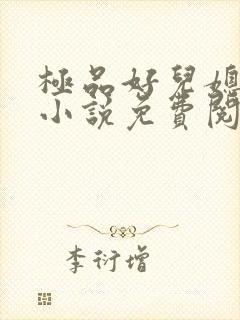 極品好兒媳
小說免費閱
李衍增